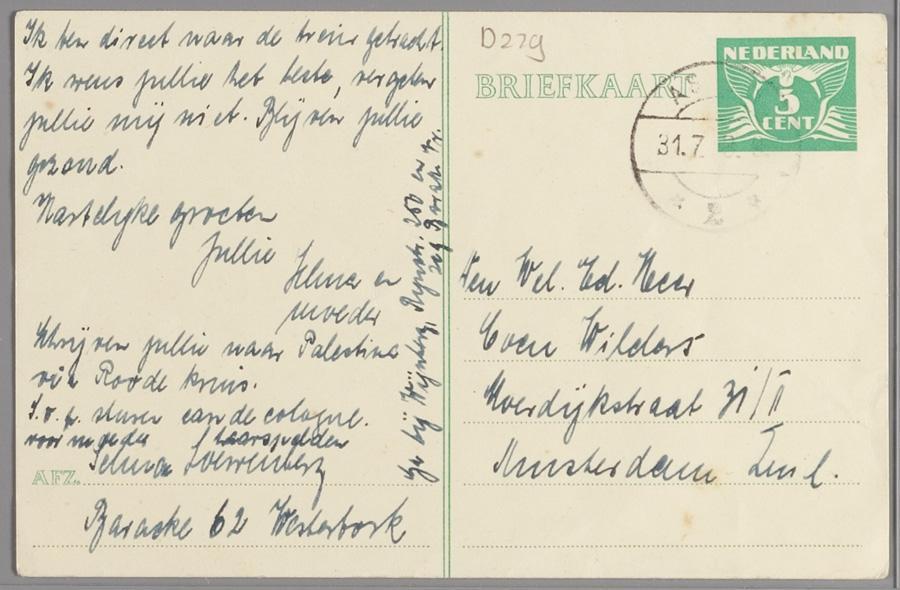 Ik ben direct naar de trein gebracht.
Ik wens jullie het beste, vergeten
jullie mij niet. Blijven jullie
gezond.
Hartelijke groeten
Jullie
Selma en
moeder
Schrijven jullie naar Palestina
via Roode kruis.
S.v.p. sturen eau de cologne.
voor moeder haarspelden
AFZ. Selma
Baracke 62 Westerbork
bij Wijnberg, Rijnstr. 200 en
D279
BRIEFKAART
NEDERLAND
5
CENT
31.7
2
Den Wel. Ed. Heer
Coen Wilders
Moerdijkstraat 31/II
Amsterdam Zuid.